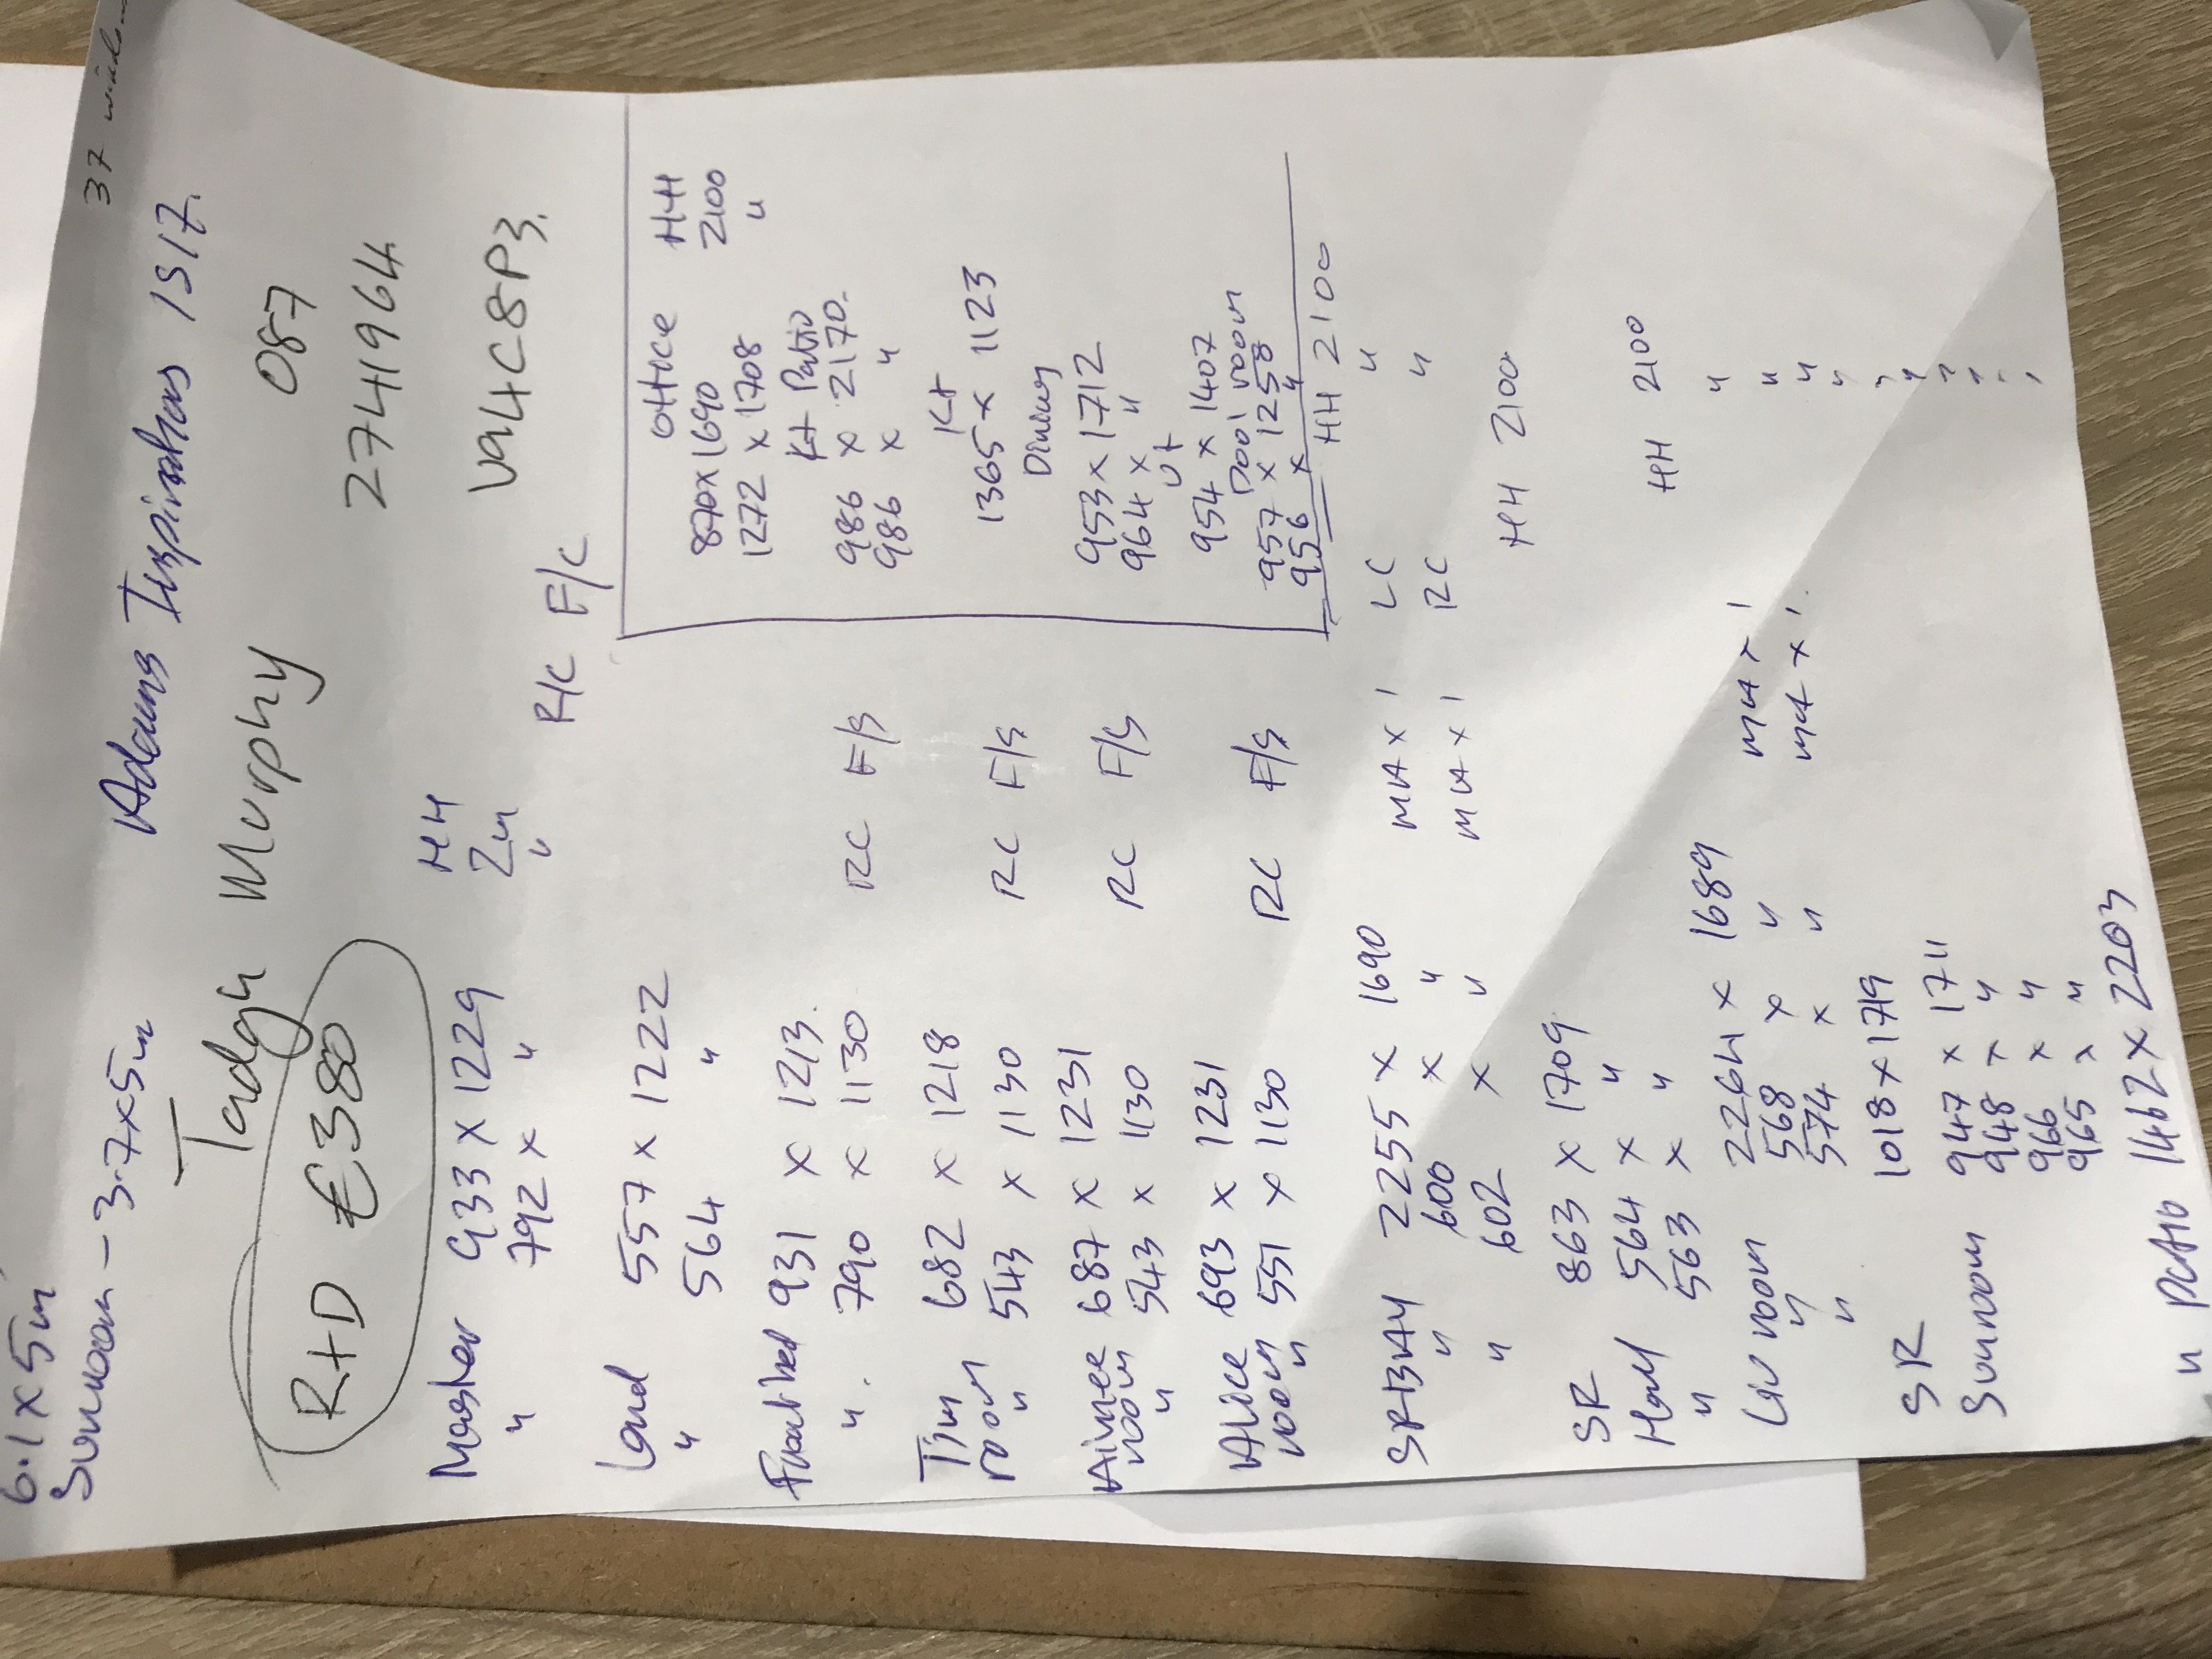 37
6.1 x 5m
Sunroom - 3.7x5m
Adams Inspirations 1517.
Tadgh Murphy 087
2741964
R+D €380
V94C8P3.
HH
Master 933 x 1229 2m
" 792 x " "
R/C F/C
Land 557 x 1222
" 564 "
Front bed 931 x 1213.
". 790 x 1130 RC F/S
Tim 682 x 1218
room 543 x 1130 RC F/S
"
Aimee 687 x 1231
room 543 x 1130 RC F/S
"
Alice 693 x 1231
room 551 x 1130 RC F/S
"
Office HH
870 x 1690 2100
1272 x 1708 "
Kt Patio
986 x 2170.
986 x "
Kt
1365 x 1123
Dining
953 x 1712
964 x "
Ut
954 x 1407
Pool room
957 x 1258
956 x "
HH 2100
SRBAY 2255 x 1690 MA x 1 LC "
" 600 x " MA x 1 RC "
" 602 x "
SR 863 x 1709 HH 2100
Hall 564 x "
" 563 x "
Liv room 2264 x 1689 HH 2100
" 568 x " MA x 1 "
" 574 x " MA x 1. "
SR 1018 x 1719 "
Sunroom 947 x 1711 "
948 x " "
966 x " "
965 x " "
" Patio 1462 x 2203